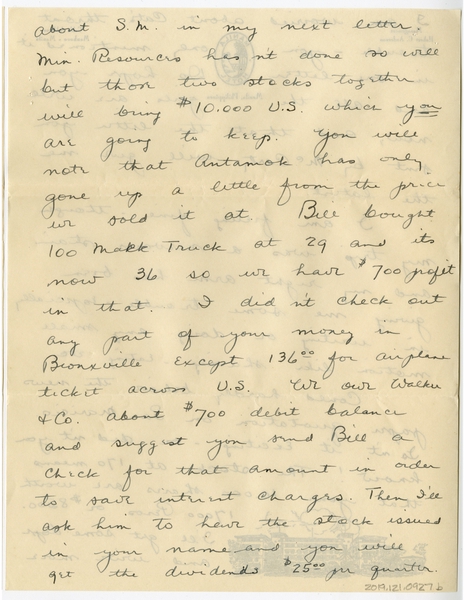 about S.M. in my next letter.
Min. Resources has n't done so well
but those two stocks together
will bring $10.000 U.S. which you
are going to keep. You will
note that Antamok has only
gone up a little from the price
we sold it at. Bill bought
100 Mack Truck at 29 and its
now 36 so we have $700 profit
in that. I did n't check out
any part of your money in
Bronxville except 136.00 for airplane
ticket across U.S. We owe Walker
& Co. about $700 debit balance
and suggest you send Bill a
check for that amount in order
to save interest charges. Then I'll
ask him to have the stock issued
in your name and you will
get the dividends $25.00 per quarter.
2019.121.0927b